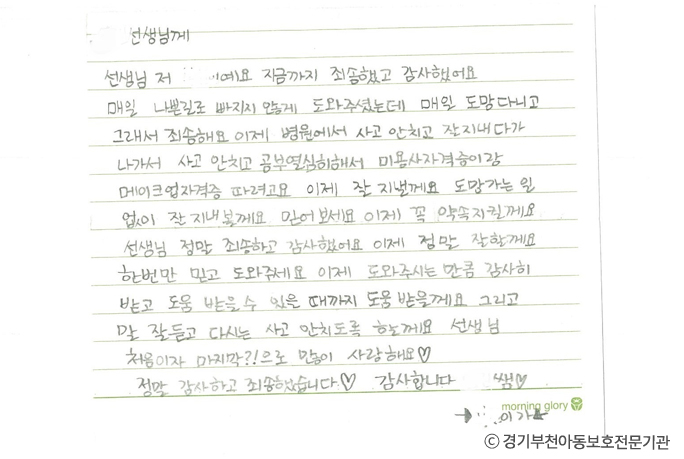 선생님께
선생님 저 이예요 지금까지 죄송했고 감사했어요
매일 나쁜길로 빠지지 않게 도와주셨는데 매일 도망다니고
그래서 죄송해요 이제 병원에서 사고 안치고 잘지내다가
나가서 사고 안치고 공부열심히해서 미용사자격증이랑
메이크업자격증 따려고요 이제 잘 지낼께요 도망가는 일
없이 잘 지내볼께요 믿어보세요 이제 꼭 약속지킬께요
선생님 정말 죄송하고 감사했어요 이제 정말 잘할께요
한번만 믿고 도와주세요 이제 도와주시는 만큼 감사히
받고 도움 받을 수 있을 때까지 도움 받을께요 그리고
말 잘듣고 다시는 사고 안치도록 할께요 선생님
처음이자 마지막?!으로 많이 사랑해요♡
정말 감사하고 죄송했습니다♡ 감사합니다 쌤♡
morning glory
이가
ⓒ 경기부천아동보호전문기관